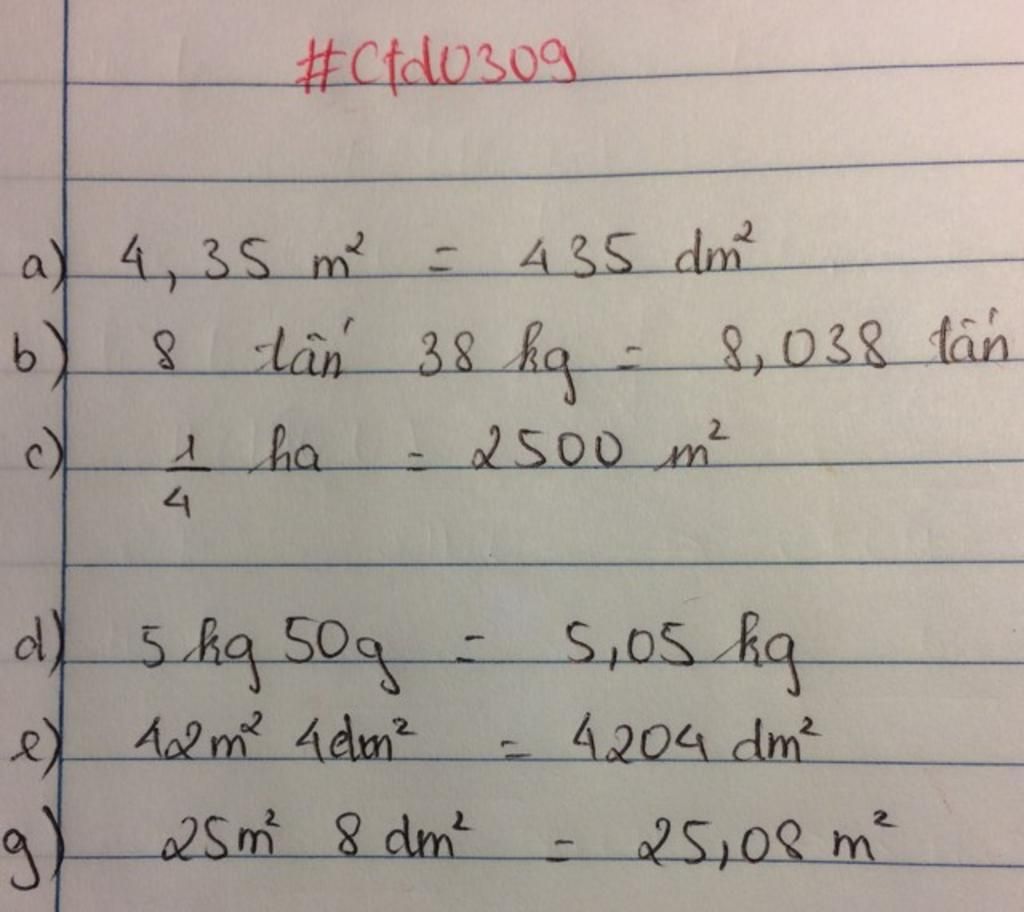 #Cfd0309
a) 4,35 m² = 435 dm²
b) 8 tấn 38 kg = 8,038 tấn
c) 1/4 ha = 2500 m²
d) 5 kg 50g = 5,05 kg
e) 42m² 4dm² = 4204 dm²
g) 25m² 8 dm² = 25,08 m²